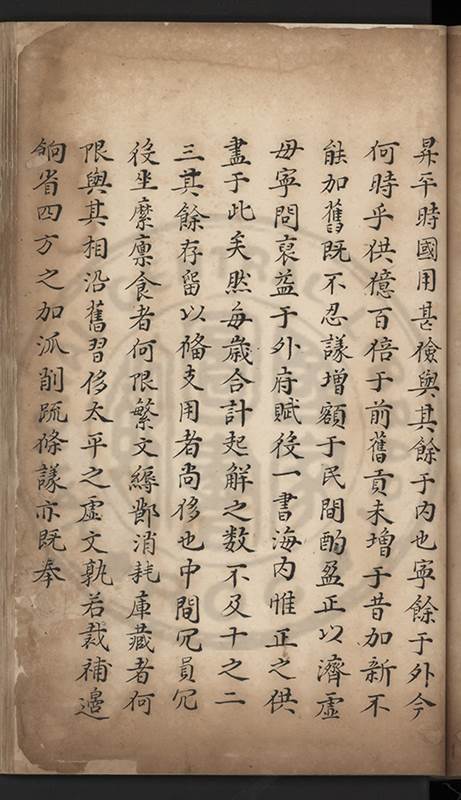 昇平時國用甚儉與其餘于内也寧餘于外今
何時乎供億百倍于前舊貢未增于昔加新不
能加舊既不忍議增額于民間酌盈正以濟虛
毋寧問裒益于外府賦役一書海内惟正之供
盡于此矣然每歲合計起解之数不及十之二
三其餘存留以俻支用者尚侈也中間冗員冗
役坐縻廪食者何限繁文縟鄙消耗庫藏者何
限與其相沿舊習侈太平之虛文孰若裁補邉
餉省四方之加派削䟽條議亦既奉